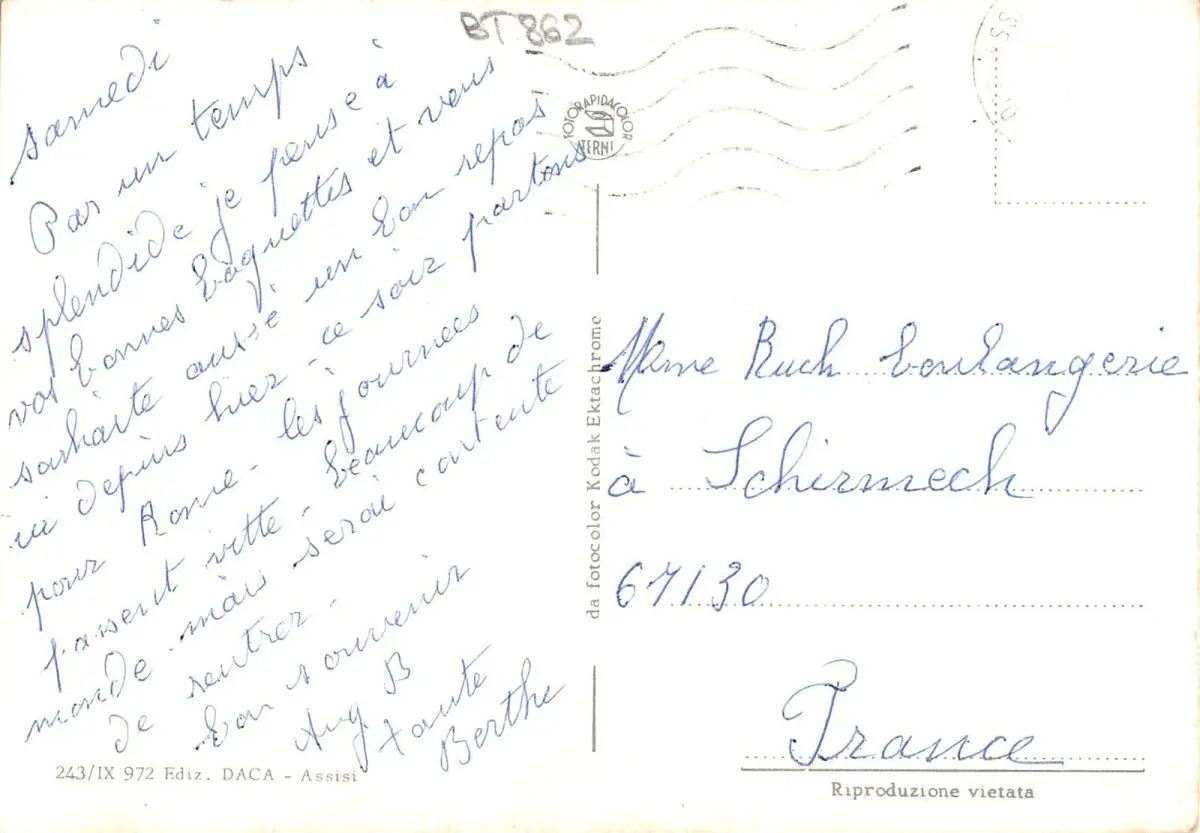 BT 862
samedi
Par un temps
splendide je pense à
vos bonnes baguettes et vous
souhaite aussi un bon repos
ici depuis hier - ce soir partons
pour Rome - les journées
passent vitte - beaucoup de
monde mais serai contente
de rentrer -
bon souvenir
Aug B
tante
Berthe
FOTORAPIDACOLOR
TERNI
da fotocolor Kodak Ektachrome
Mme Ruch boulangerie
à Schirmeck
67130
France
243/IX 972 Ediz. DACA - Assisi
Riproduzione vietata